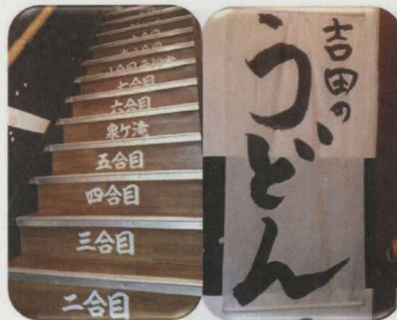 七合目
六合目
泉ケ滝
五合目
四合目
三合目
二合目
吉田の
うどん